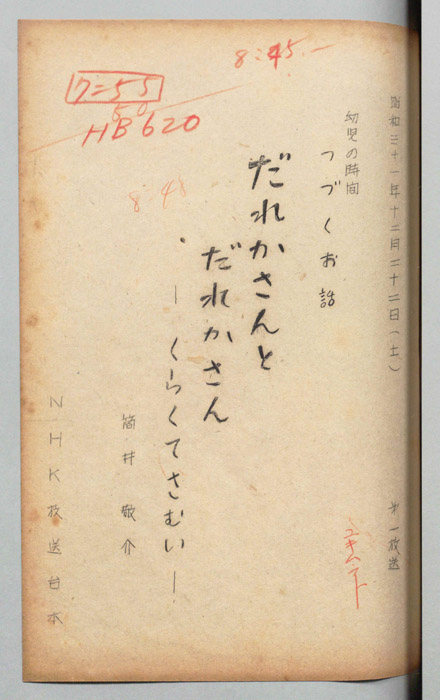 昭和三十一年十二月二十二日(土)
第一放送
幼児の時間
つづくお話
だれかさんと
だれかさん
— くらくてさむい —
筒井敬介
NHK放送台本
8:45
7=55
50
HB620
8:48